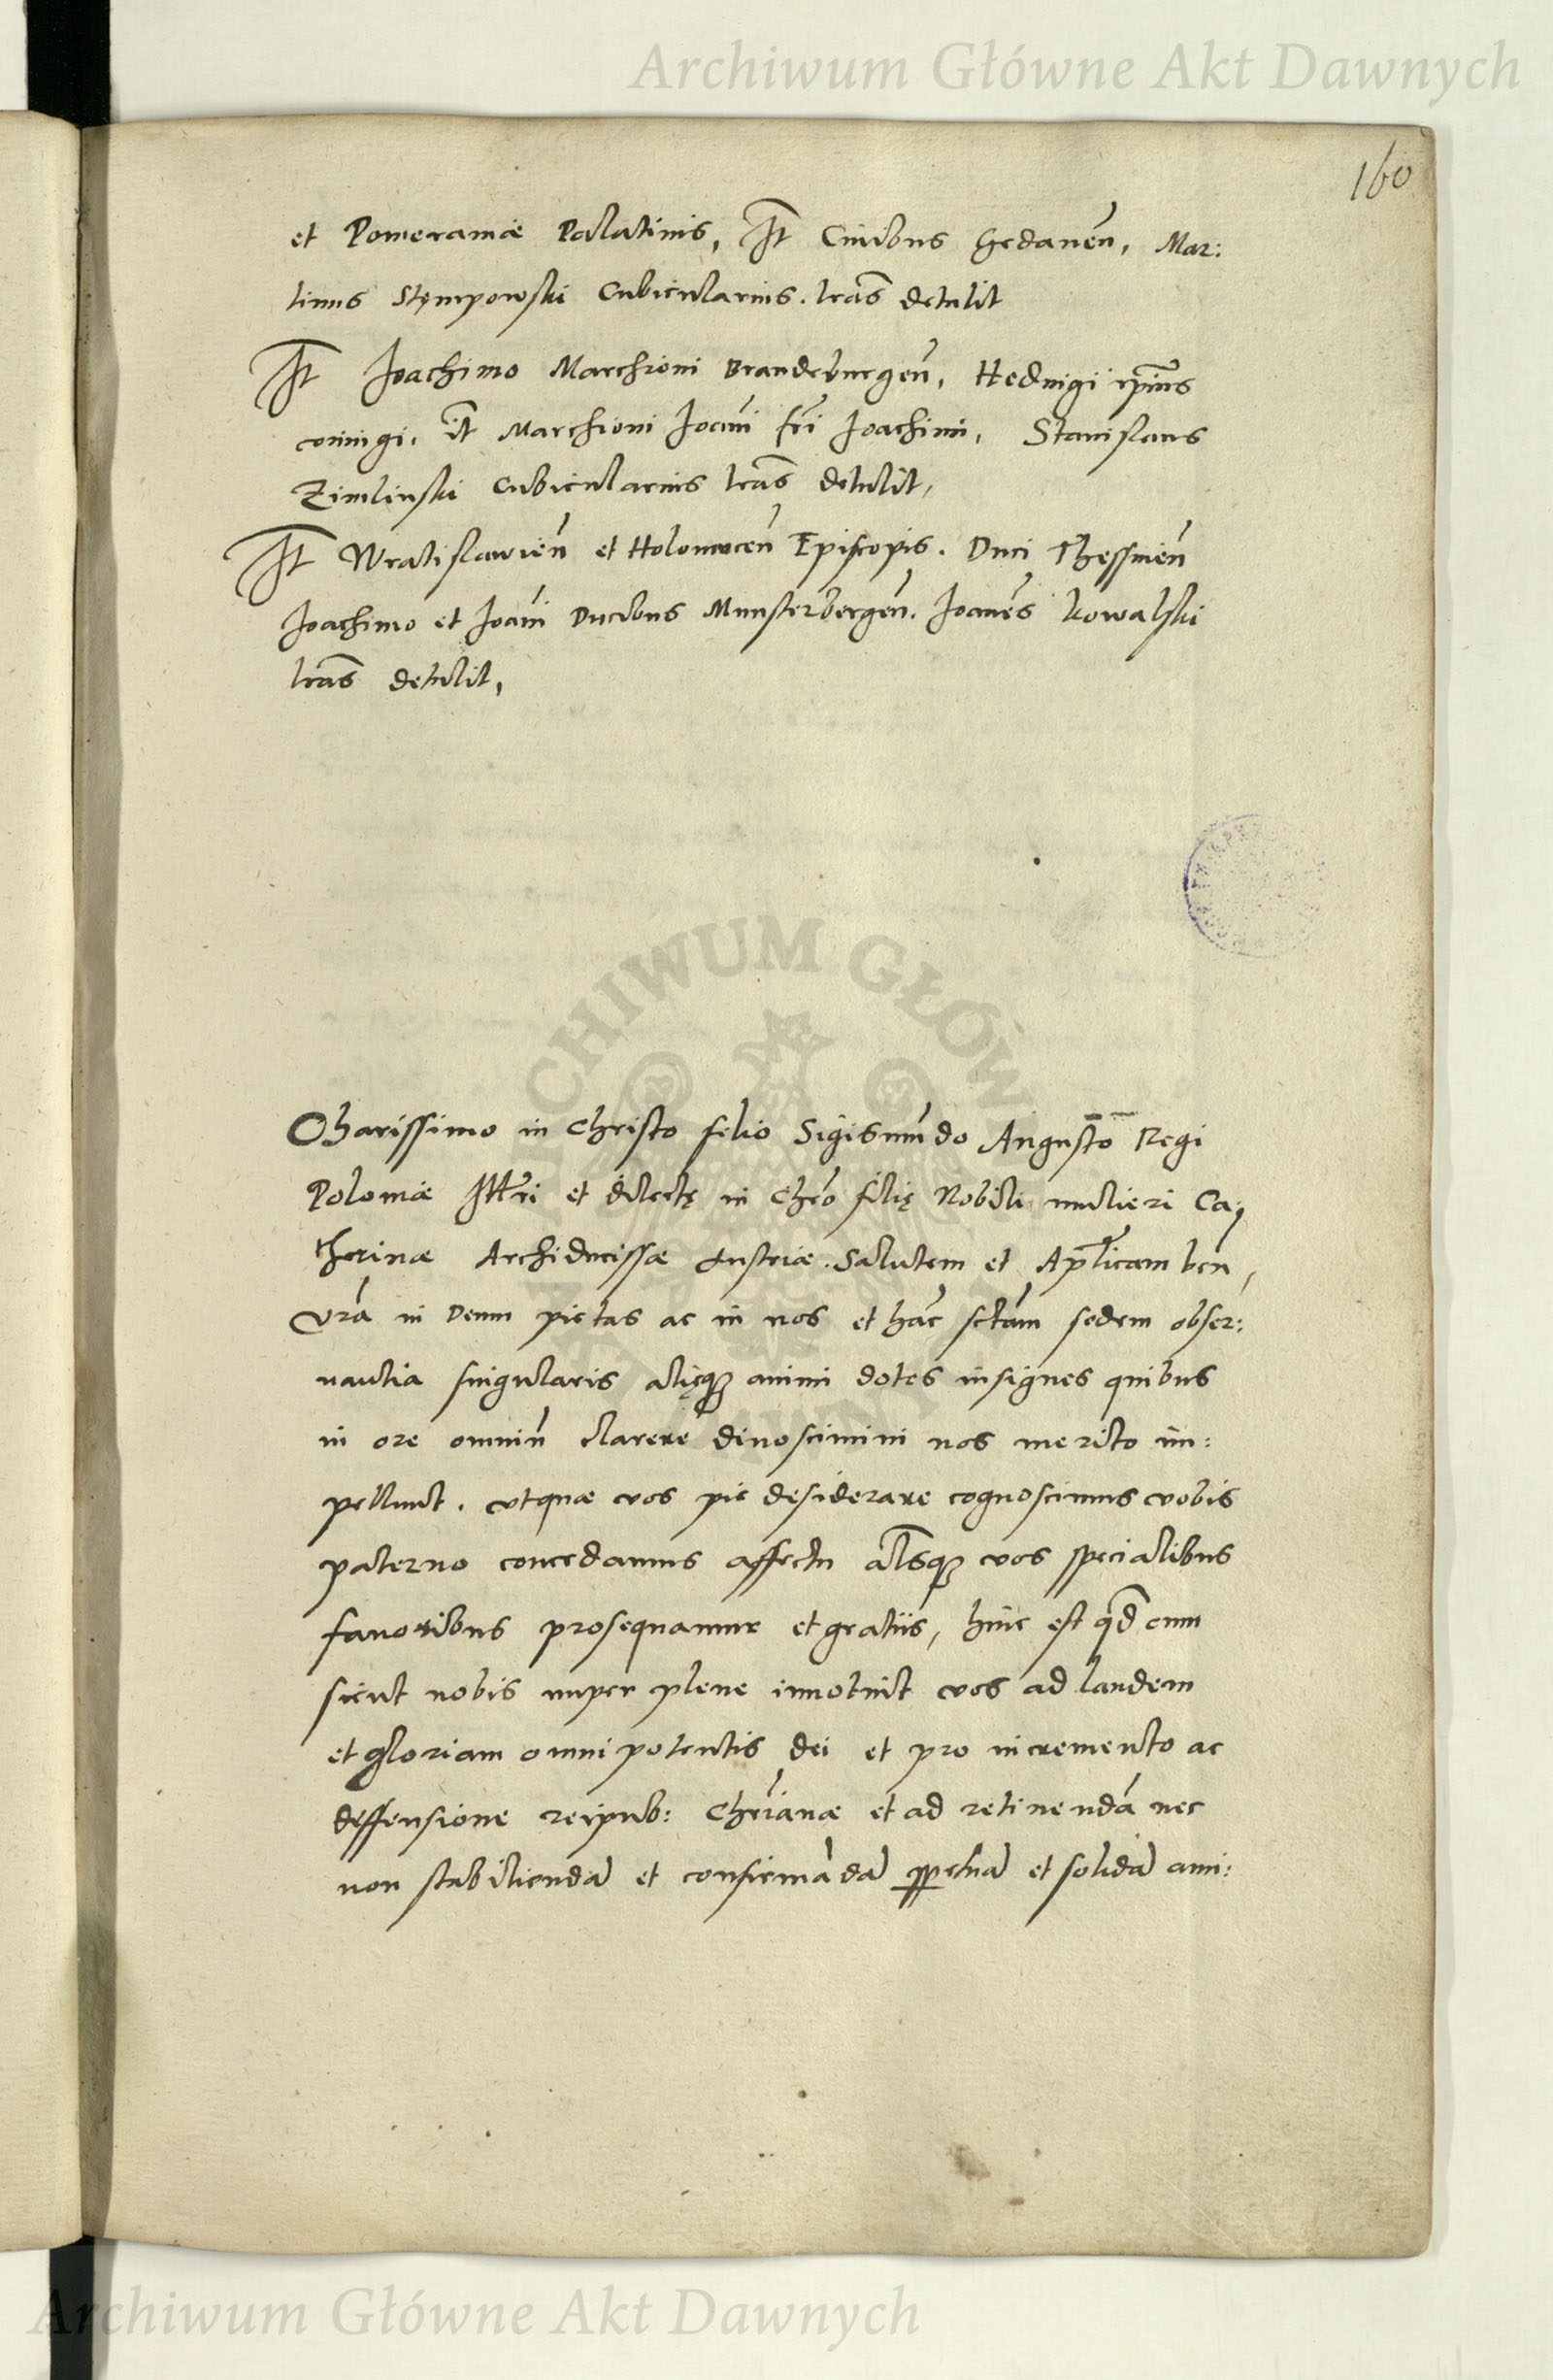 Archiwum Główne Akt Dawnych
160
et Pomeraniæ Palatinis, It Civibus Gedaneñ, Mar:
tinus Stempowski Cubicularius. lras detulit
It Joachimo Marchioni Brandeburgeñ, Hedvigi ipius
coniugi, it Marchioni Joanni fri Joachimi, Stanislaus
Zimlinski Cubicularius lras detulit,
It Wratislavień et Holomucen Episcopis. Duci Thessinen
Joachimo et Joanni Ducibus Munsterbergen. Joanes Kowalski
lras detulit,
ARCHIWUM GŁÓW
Charissimo in Christo filio Sigismundo Augusto Regi
Poloniæ Illri et dilectę in Chro filię Nobili mulieri Ca,
therinæ Archiducissæ Austriæ. Salutem et Aplicam ben,
Vra in Deum pietas ac in nos et hanc sctam sedem obser:
vantia singularis alięq animi dotes insignes quibus
in ore omniu clarere dinoscimini nos merito im:
pellunt. ut quæ vos pie desiderare cognoscimus vobis
paterno concedamus affectu alsq vos specialibus
favoribus prosequamur et gratiis, hinc est qd cum
sicut nobis nuper plene innotuit vos ad laudem
et gloriam omnipotentis dei et pro incremento ac
deffensione reipub: Chrianæ et ad retinendã nec
non stabiliendã et confirmãdã ppetuã et solidã ami:
Archiwum Główne Akt Dawnych